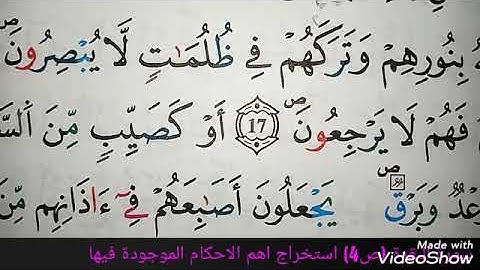 بِنُورِهِمْ وَتَرَكَهُمْ فِي ظُلُمَٰتٍ لَّا يُبْصِرُونَ ص
فَهُمْ لَا يَرْجِعُونَ ص 17 أَوْ كَصَيِّبٍ مِّنَ اَ۬لسَّ
عْدٞ وَبَرْقٞ ص يَجْعَلُونَ أَصَٰبِعَهُمْ فِےٓ ءَاذَانِهِم مِّنَ
(ص4) استخراج اهم الاحكام الموجودة فيها
Made with
VideoShow